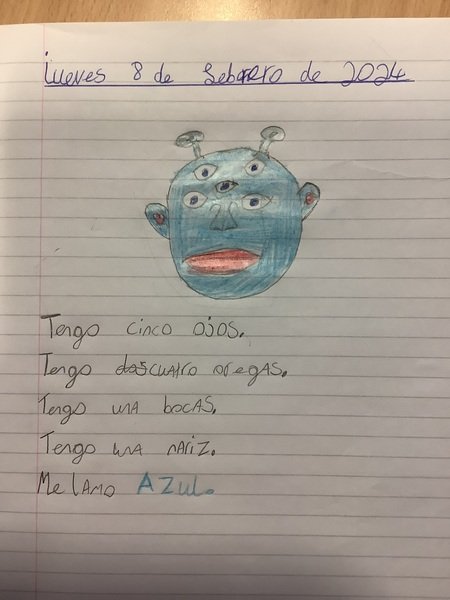 jueves 8 de febrero de 2024
Tengo cinco ojos.
Tengo dos cuatro oregas.
Tengo una bocas.
Tengo una nariz.
Me llamo Azul.